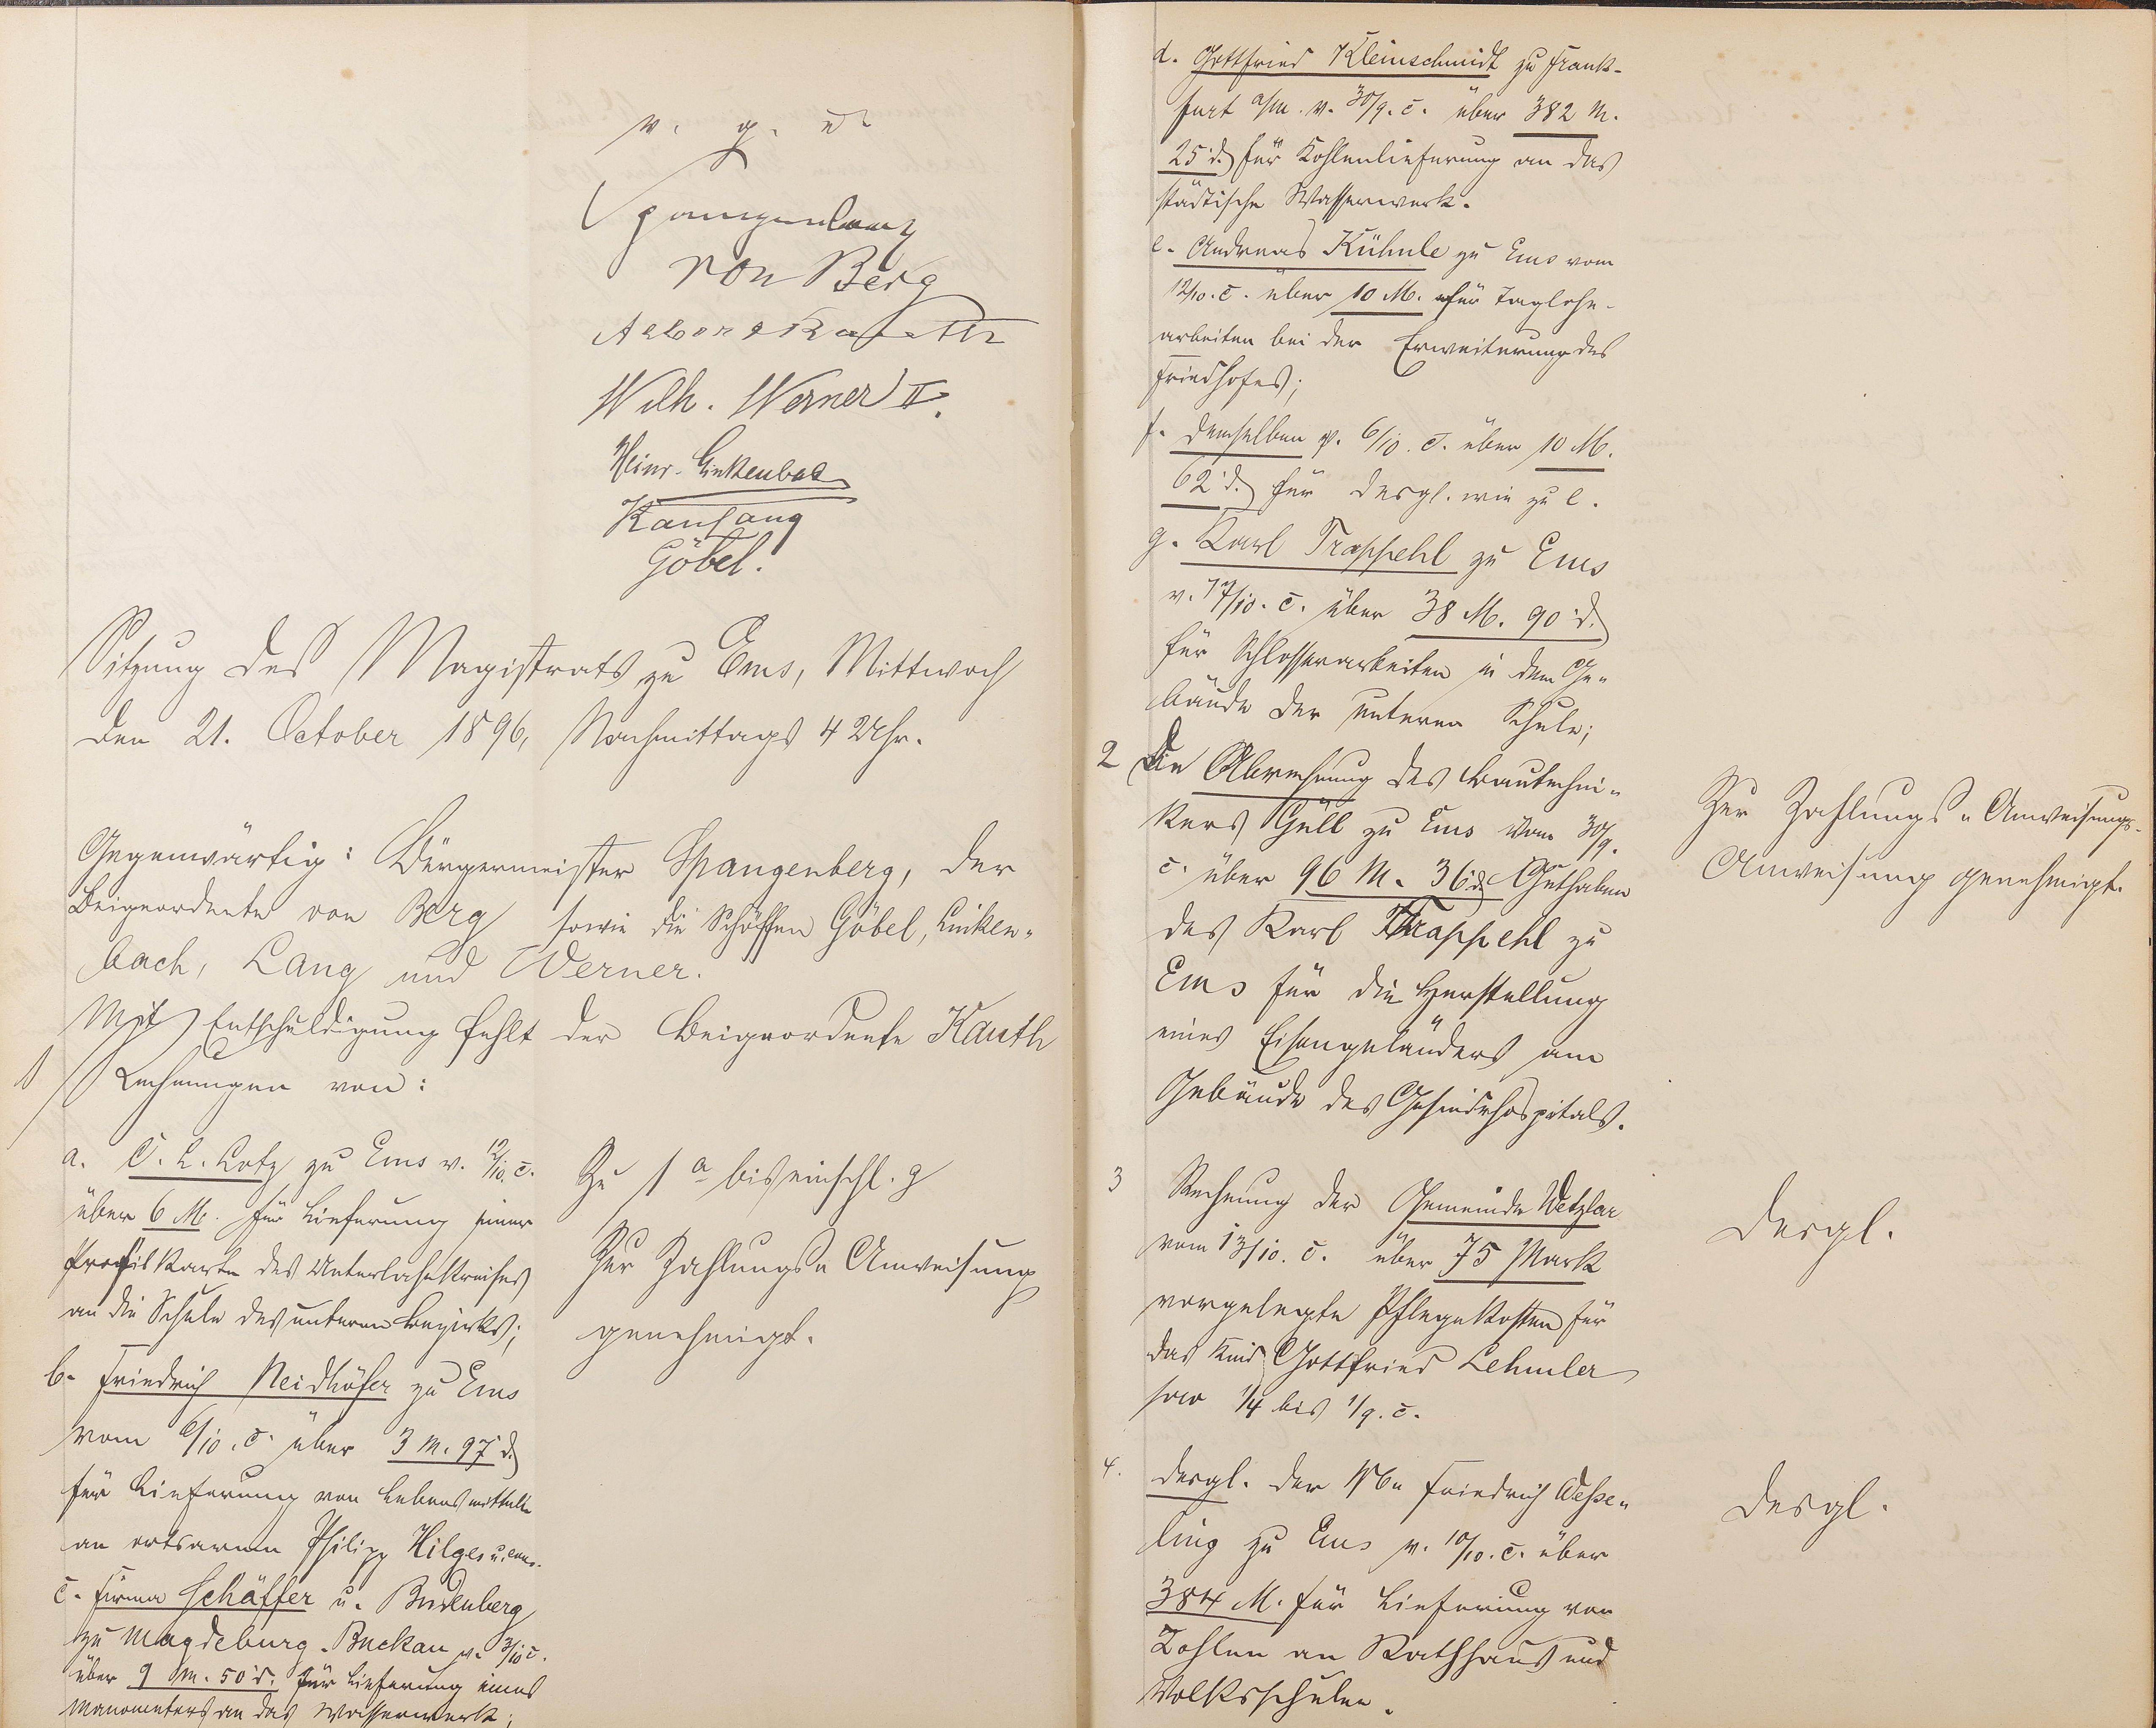 v. g. u.
Spangenberg
von Berg
Wilh. Werner II.
Heinr. Linkenbach
Göbel.
Sitzung des Magistrats zu Ems, Mittwoch
den 21. October 1896, Nachmittags 4 Uhr.
Gegenwärtig: Bürgermeister Spangenberg, der
Beigeordnete von Berg sowie die Schöffen Göbel, Linken-
bach, Lang und Werner.
Mit Entschuldigung fehlt der Beigeordnete Kauth
1 Rechnungen von:
a. C. L. Lotz zu Ems v. 12/10. c.
über 6 M. für Lieferung einer
Profilkarte des Unterlahnkreises
an die Schule des unteren Bezirks;
b. Friedrich Neidhöfer zu Ems
vom 6/10. c. über 3 M. 97 d.
für Lieferung von Lebensmitteln
an ortsarmen Philipp Hilges u. cons.
c. Firma Schäffer u. Budenberg
zu Magdeburg-Buckau v. 3/10 c.
über 9 M. 50 d. für Lieferung eines
Manometers an das Wasserwerk;
Zu 1 a bis einschl. g
Zur Zahlungs-Anweisung
genehmigt.
d. Gottfried Kleinschmidt zu Frank-
furt a/M. v. 30/9. c. über 382 M.
25 d. für Kohlenlieferung an das
städtische Wasserwerk.
e. Andreas Kühnle zu Ems vom
12/10. c. über 10 M. für Taglohn-
arbeiten bei der Erweiterung des
Friedhofes;
f. demselben v. 6/10. c. über 10 M.
62 d. für desgl. wie zu e.
g. Karl Trappehl zu Ems
v. 17/10. c. über 38 M. 90 d.
für Schlosserarbeiten in dem Ge-
bäude der unteren Schule;
2 Die Abrechnung des Bautechni-
kers Güll zu Ems vom 30/9.
c. über 96 M. 36 d. Guthaben
des Karl Trappehl zu
Ems für die Herstellung
eines Eisengeländers am
Gebäude des Gesindehospitals.
Zur Zahlungs-Anweisungs-
Anweisung genehmigt.
3 Rechnung der Gemeinde Wetzlar
vom 13/10. c. über 75 Mark
vorgelegte Pflegekosten für
das Kind Gottfried Lehmler
pro 1/4 bis 1/9. c.
desgl.
4. desgl. der Wwe Friedrich Wesse-
ling zu Ems v. 10/10. c. über
384 M. für Lieferung von
Kohlen an Rathhaus und
Volksschulen.
desgl.